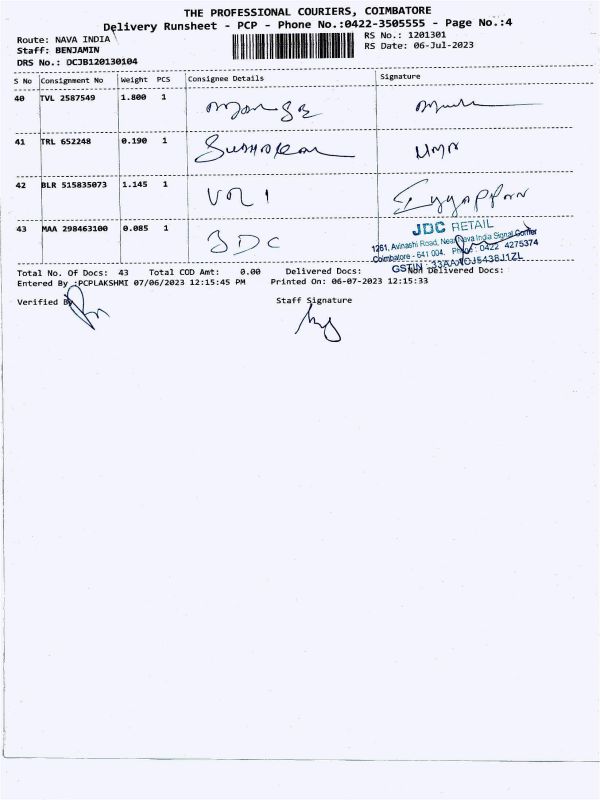 THE PROFESSIONAL COURIERS, COIMBATORE
Delivery Runsheet - PCP - Phone No.:0422-3505555 - Page No.:4
Route: NAVA INDIA RS No.: 1201301
Staff: BENJAMIN RS Date: 06-Jul-2023
DRS No.: DCJB120130104
S No Consignment No Weight PCS Consignee Details Signature
40 TVL 2587549 1.800 1
41 TRL 652248 0.190 1
42 BLR 515835073 1.145 1 Iyyappan
43 MAA 298463100 0.085 1 JDC
JDC RETAIL
1261, Avinashi Road, Near Nava India Signal Corner
Coimbatore - 641 004. Phone : 0422 4275374
GSTIN :
Total No. Of Docs: 43 Total COD Amt: 0.00 Delivered Docs: Non Delivered Docs:
Entered By :PCPLAKSHMI 07/06/2023 12:15:45 PM Printed On: 06-07-2023 12:15:33
Verified By Staff Signature